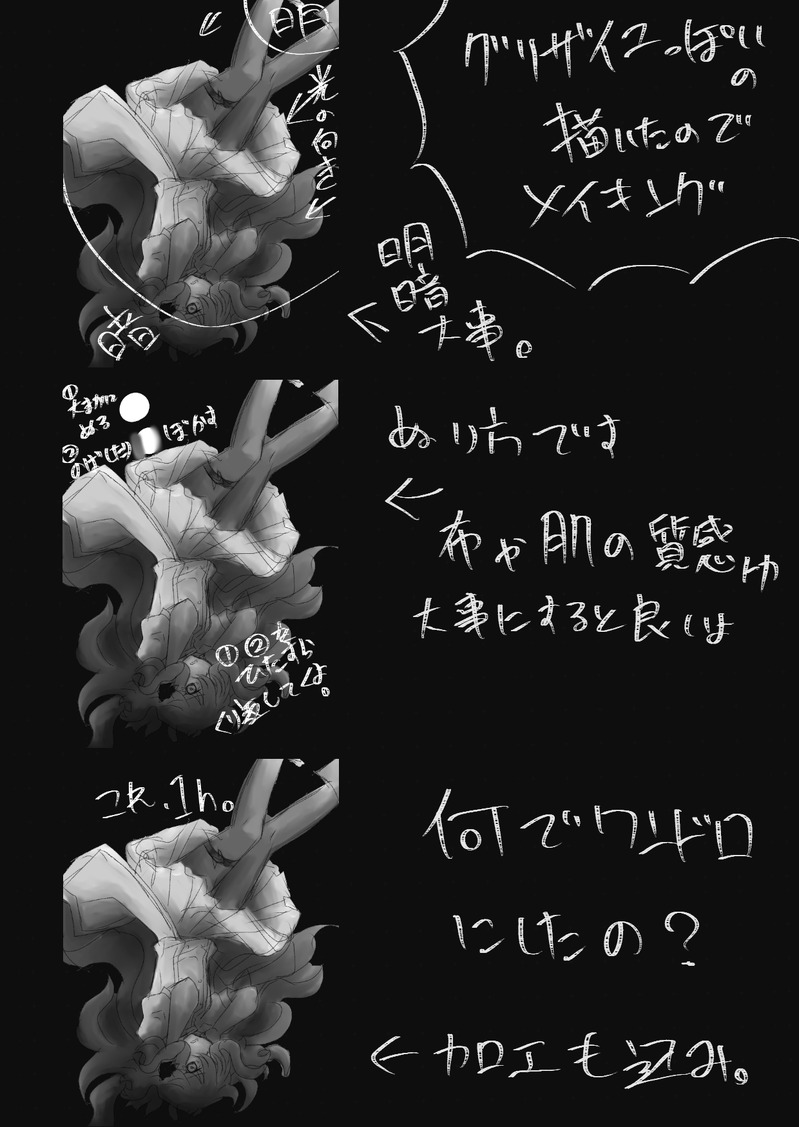 グリザイユっぽい
の
描いたので
メイキング
明
光の向き
明
暗
大事。
暗
①大まかに
ぬる
②のばしたり
ぼかす
ぬり方です
布や肌の質感は
大事にすると良いよ
①②を
ひたすら
くり返してく。
これ.1h。
何でワンドロ
にしたの?
加工も込み。